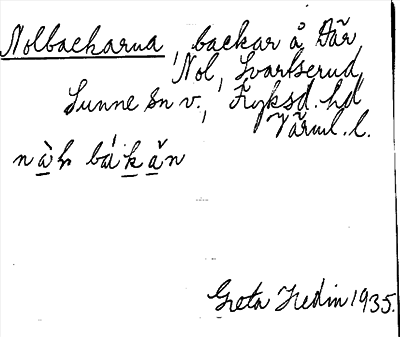 Nolbackarna, backar å Där
Nol, Svartserud,
Sunne sn v., Fryksd. hd
Värml. l.
nàḷ bákăn
Greta Hedin 1935.